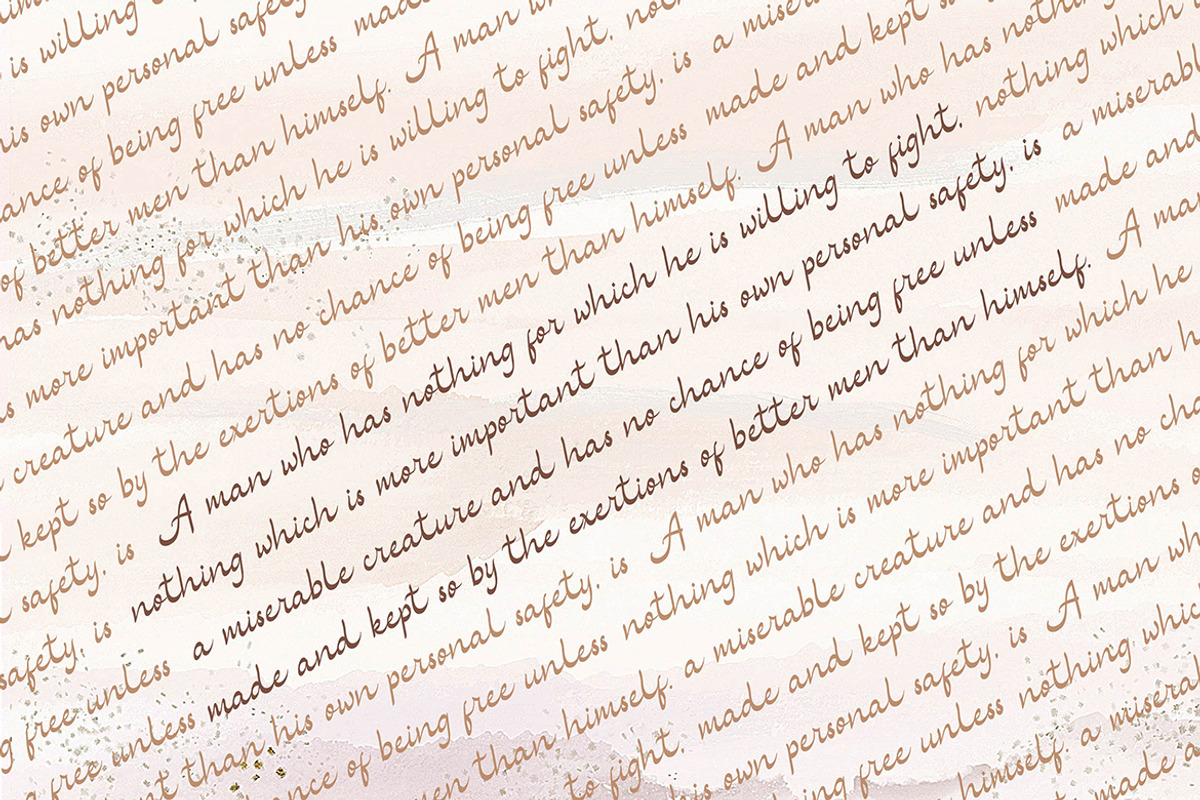 is willing
his own personal safety
ance of being free unless made
of better men than himself. A man wh
has nothing for which he is willing to fight, noth
s more important than his own personal safety, is a misera
creature and has no chance of being free unless made and kept so
kept so by the exertions of better men than himself. A man who has nothing
safety, is A man who has nothing for which he is willing to fight, nothing which
safety, is nothing which is more important than his own personal safety, is a miserabl
g free unless a miserable creature and has no chance of being free unless made and
free unless made and kept so by the exertions of better men than himself. A man
nt than his own personal safety, is A man who has nothing for which he
ance of being free unless nothing which is more important than h
men than himself. a miserable creature and has no cha
to fight, made and kept so by the exertions o
his own personal safety, is A man wh
ing free unless nothing whic
himself. a misera
made a